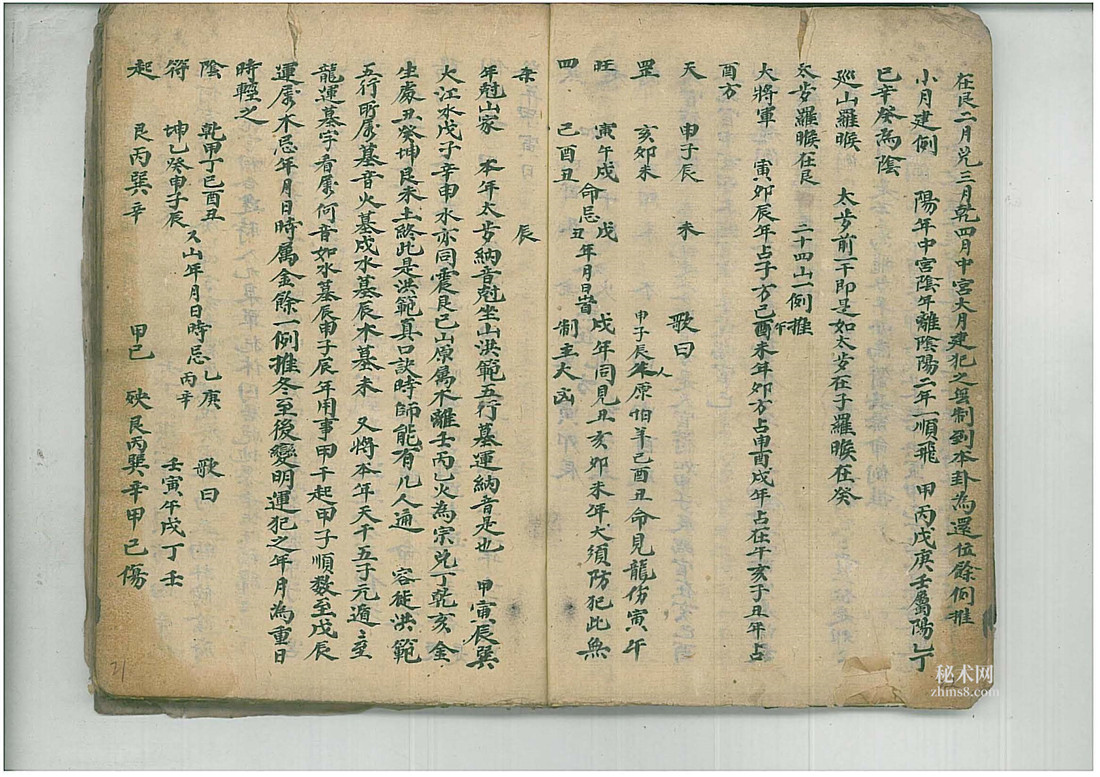 在艮二月兑三月乾四月中宫大月建犯之無制到本卦為還位餘例推
小月建例 陽年中宫陰年離陰陽二年一順飛 甲丙戊庚壬屬陽乙丁
已辛癸為陰
廵山羅睺 太歩前一干即是如太歩在子羅睺在癸
太歩羅睺在艮 二十四山一例推
大將軍 寅卯辰年占子方已午未年卯方占申酉戌年占在午亥子丑年占
酉方
天 申子辰 未 歌曰
罡 亥卯未 甲子辰人原怕羊已酉丑命見龍傷寅午
旺 寅午戌 命忌 戊丑年月日皆 戌年同見丑亥卯未年犬須防犯此無
四 已酉丑 辰 制主大凶
年尅山家 本年太歩納音尅坐山洪範五行墓運納音是也 甲寅辰巽
大江水戊子辛申水亦同震艮已山原屬木離壬丙乙火為宗兑丁乾亥金
生處丑癸坤艮未土終此是洪範真口訣時師能有几人通 容徒洪範
五行所屬墓音火墓戌水墓辰木墓未 又將本年天干五子元遁至
龍運墓字看屬何音如水墓辰申子辰年用事甲干起甲子順数至戊辰
運屬木忌年月日時屬金餘一例推冬至後變明運犯之年月為重日
時輕之
陰 乾甲丁已酉丑 乙庚 歌曰
符 坤乙癸申子辰 又山年月日時忌 丙辛 壬寅午戌丁壬
起 艮丙巽辛 甲已 殃艮丙巽辛甲已傷
21
秘术网
zhms8.com